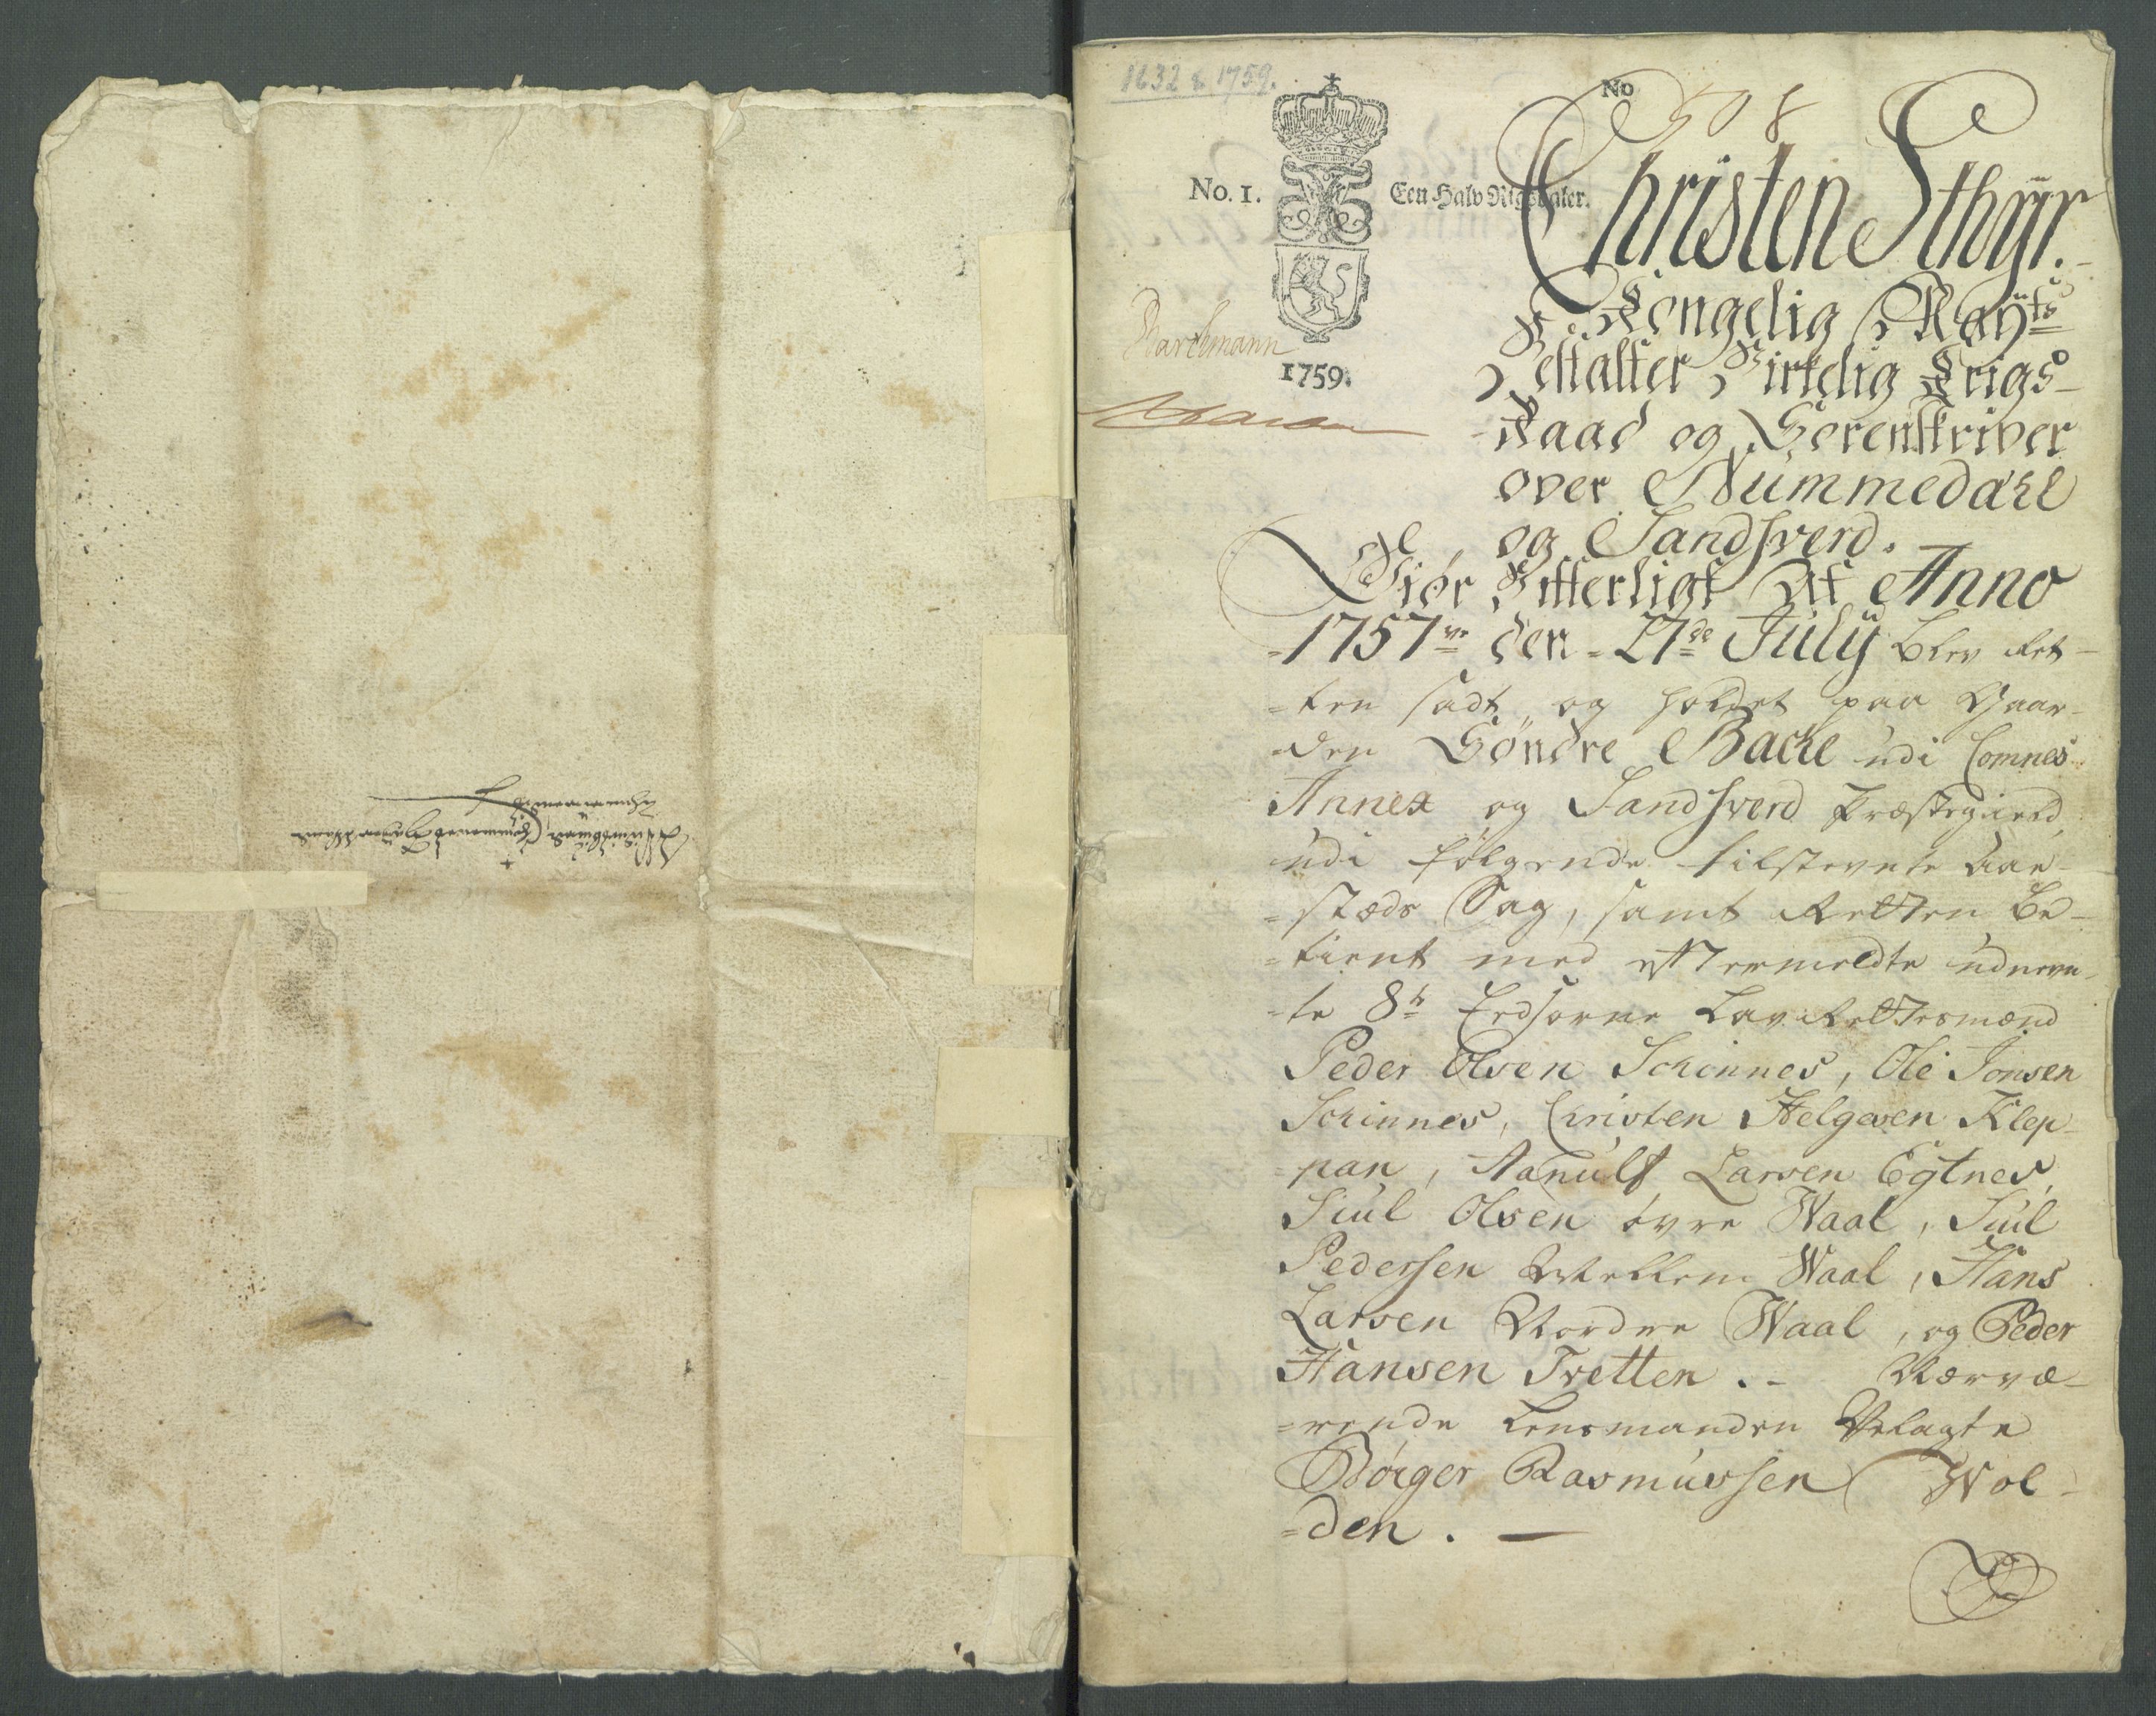 1632 & 1759.
No 508
No. 1. Een Halv Rigsdaler.
1759.
Christen Sthyr.
Kongelig Mayts
Bestalter Virkelig Krigs-
Raad og Sorenskriver
over Nummedahl
og Sandsverd.
Giör Vitterligt At Anno
1757ve den 27de July blev Ret-
-ten sadt og holdet paa Gaar-
-den Söndre Bache udi Comnes
Annex og Sandsverd Præstegield,
udi følgende tilstevnte Aae-
-stæds Sag, samt Retten be-
-tient med eftermeldte udnevn-
-te 8te Eedsorne Lav Rettesmænd
Peder Olsen Schinnes, Ole Jonsen
Schinnes, Christen Helgesen Klep-
-pan, Aanulf Larsen Egtnes,
Siul Olsen övre Waal, Siul
Pedersen Mellem Waal, Hans
Larsen Nordre Waal, og Peder
Hansen Tvetten. - Nærvæ-
-rende Lensmanden Velagte
Börger Rasmussen Wol-
-den. -